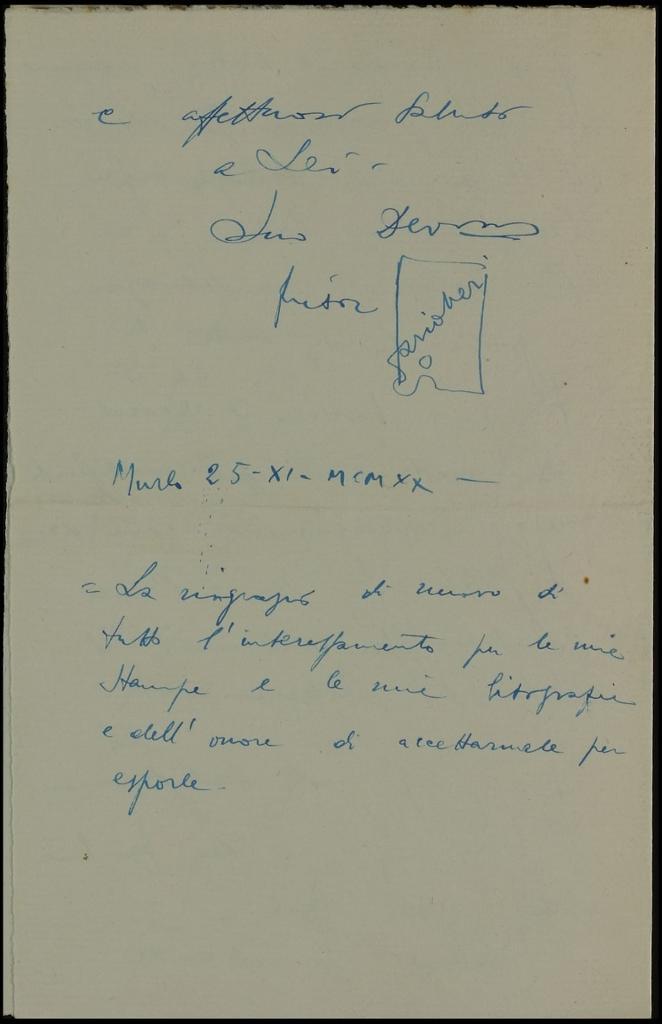 e affettuosi saluti
a Lei -
Suo Devmo

Murlo 25-XI-MCMXX —
= La ringrazio di nuovo di
tutto l'interessamento per le mie
stampe e le mie litografie
e dell'onore di accettarmele per
esporle.